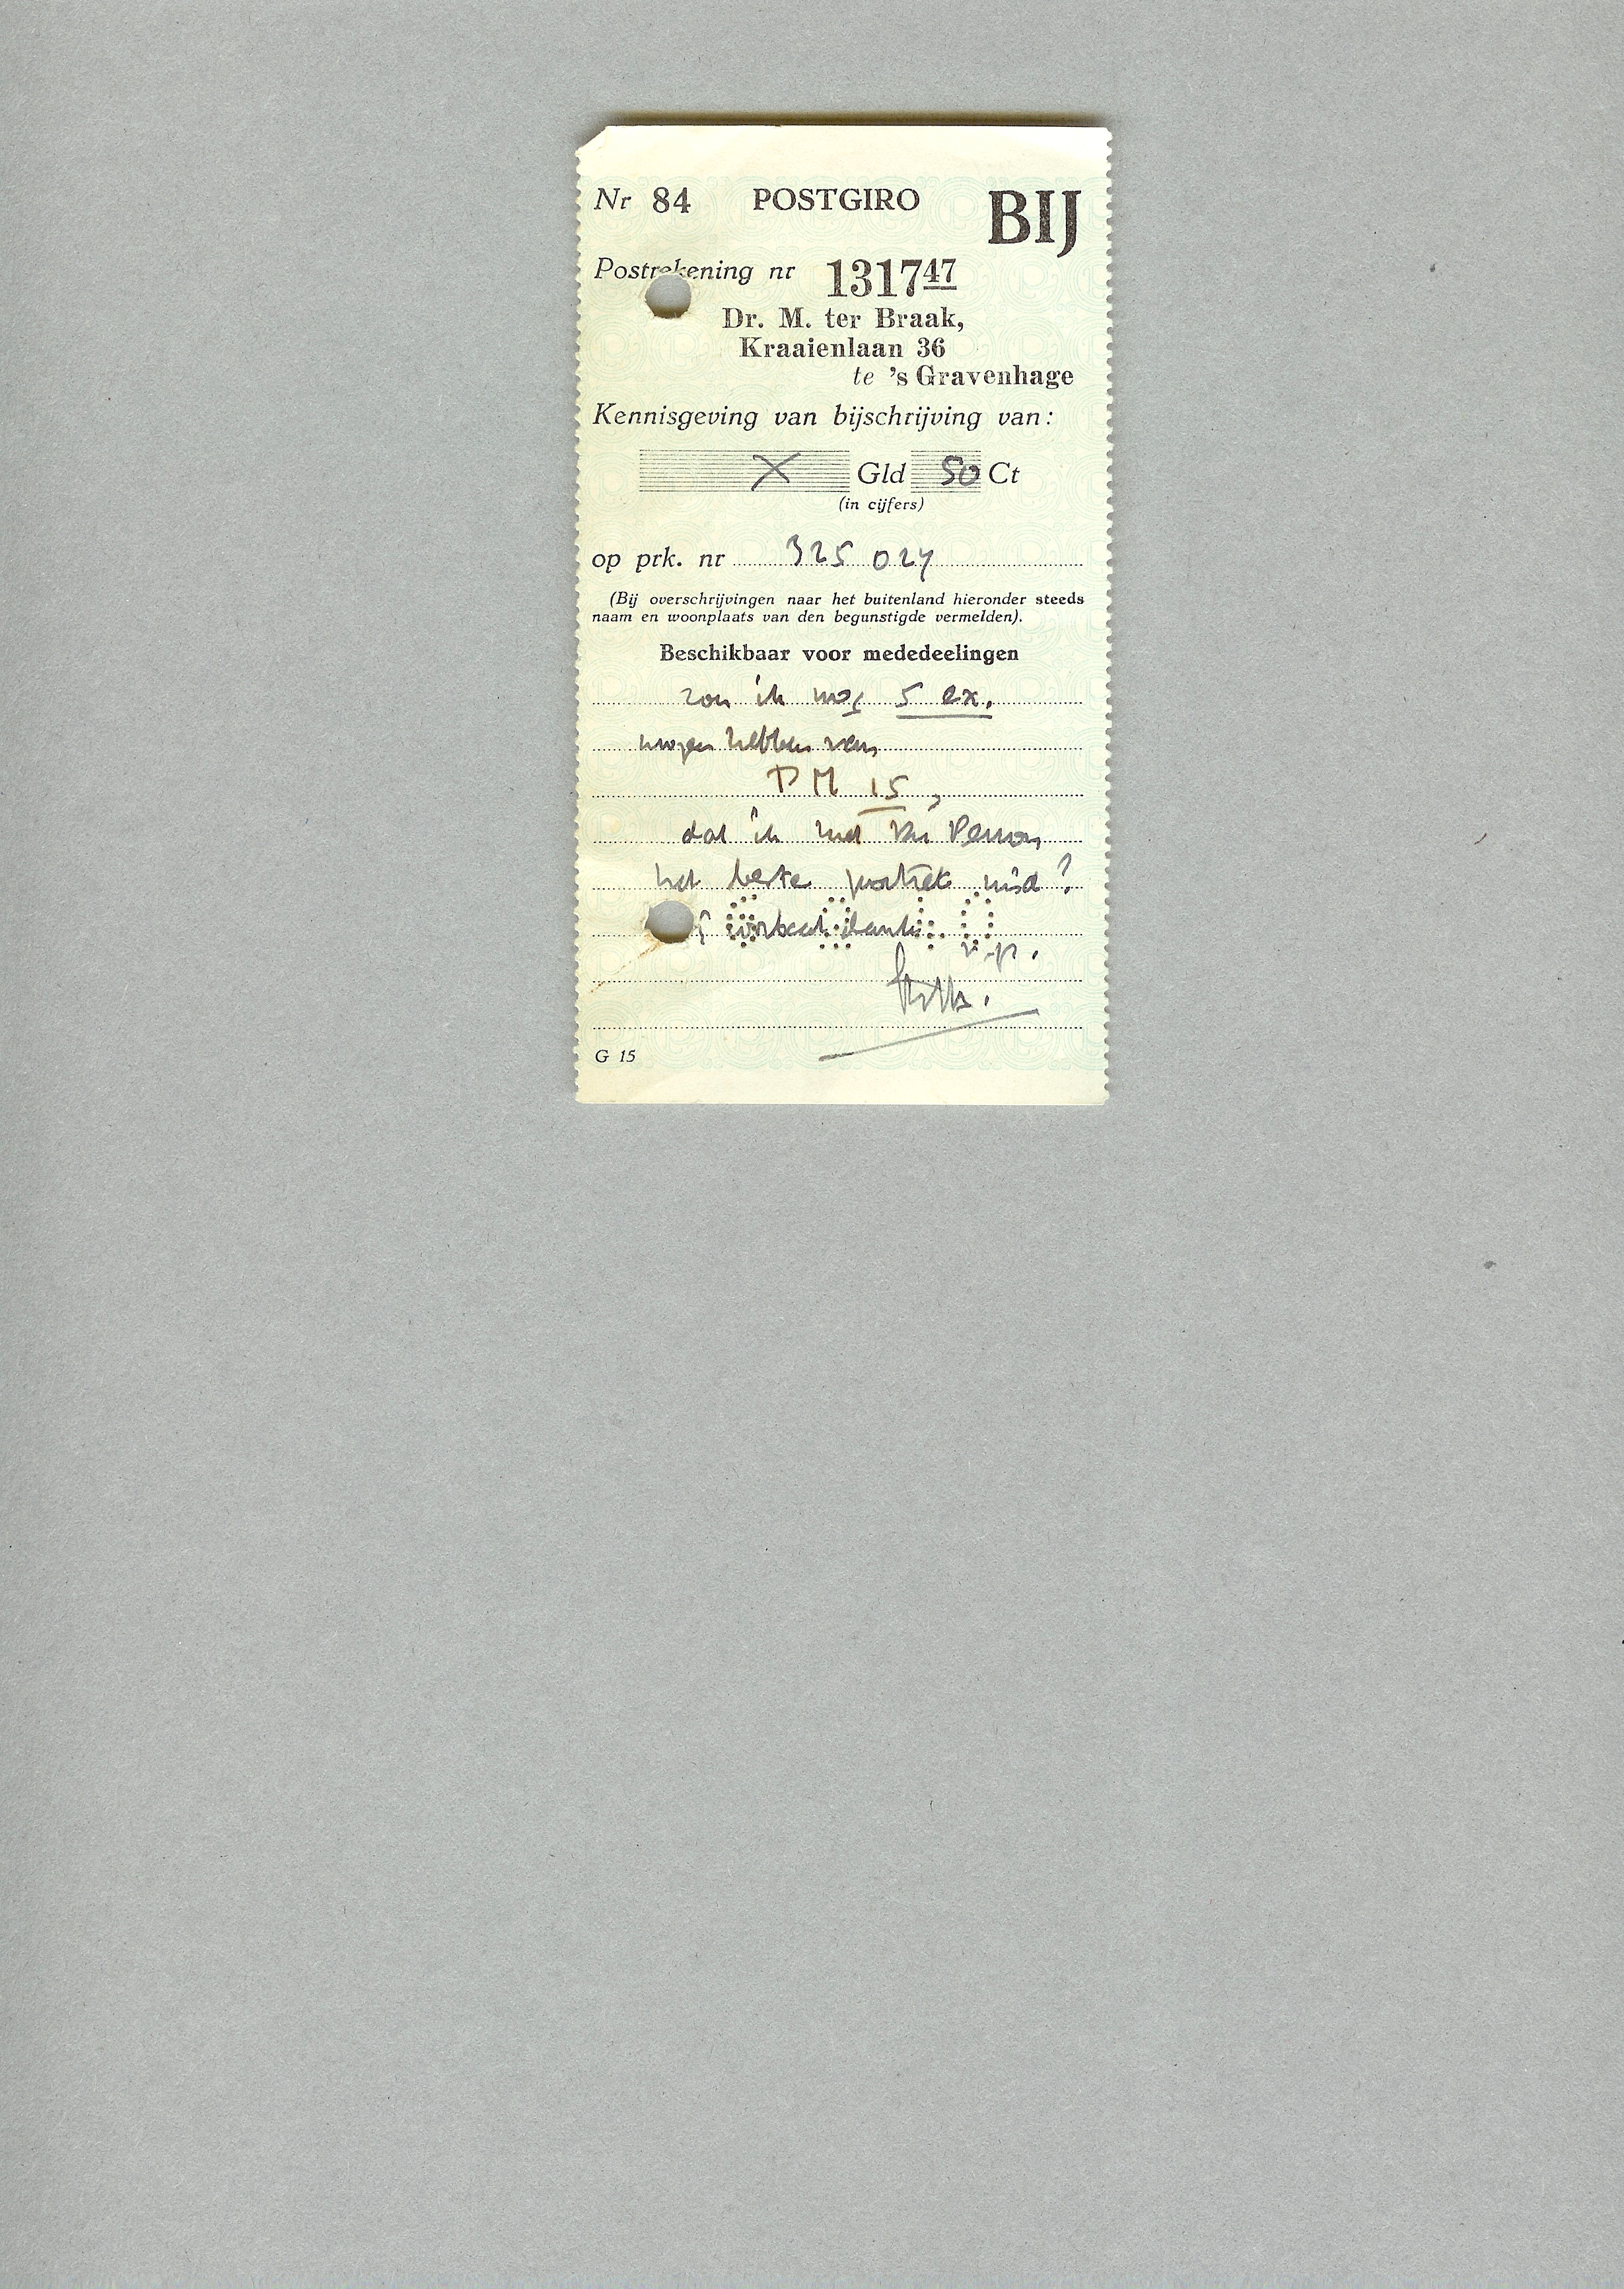 Nr 84 POSTGIRO BIJ
Postrekening nr 131747
Dr. M. ter Braak,
Kraaienlaan 36
te 's Gravenhage
Kennisgeving van bijschrijving van:
X Gld 50 Ct
(in cijfers)
op prk. nr 325024
(Bij overschrijvingen naar het buitenland hieronder steeds
naam en woonplaats van den begunstigde vermelden).
Beschikbaar voor mededeelingen
zou ik nog 5 ex.
mogen hebben van
PM 15,
dat ik met Du Perron
het beste portret vind?
bank
v.p.
G 15